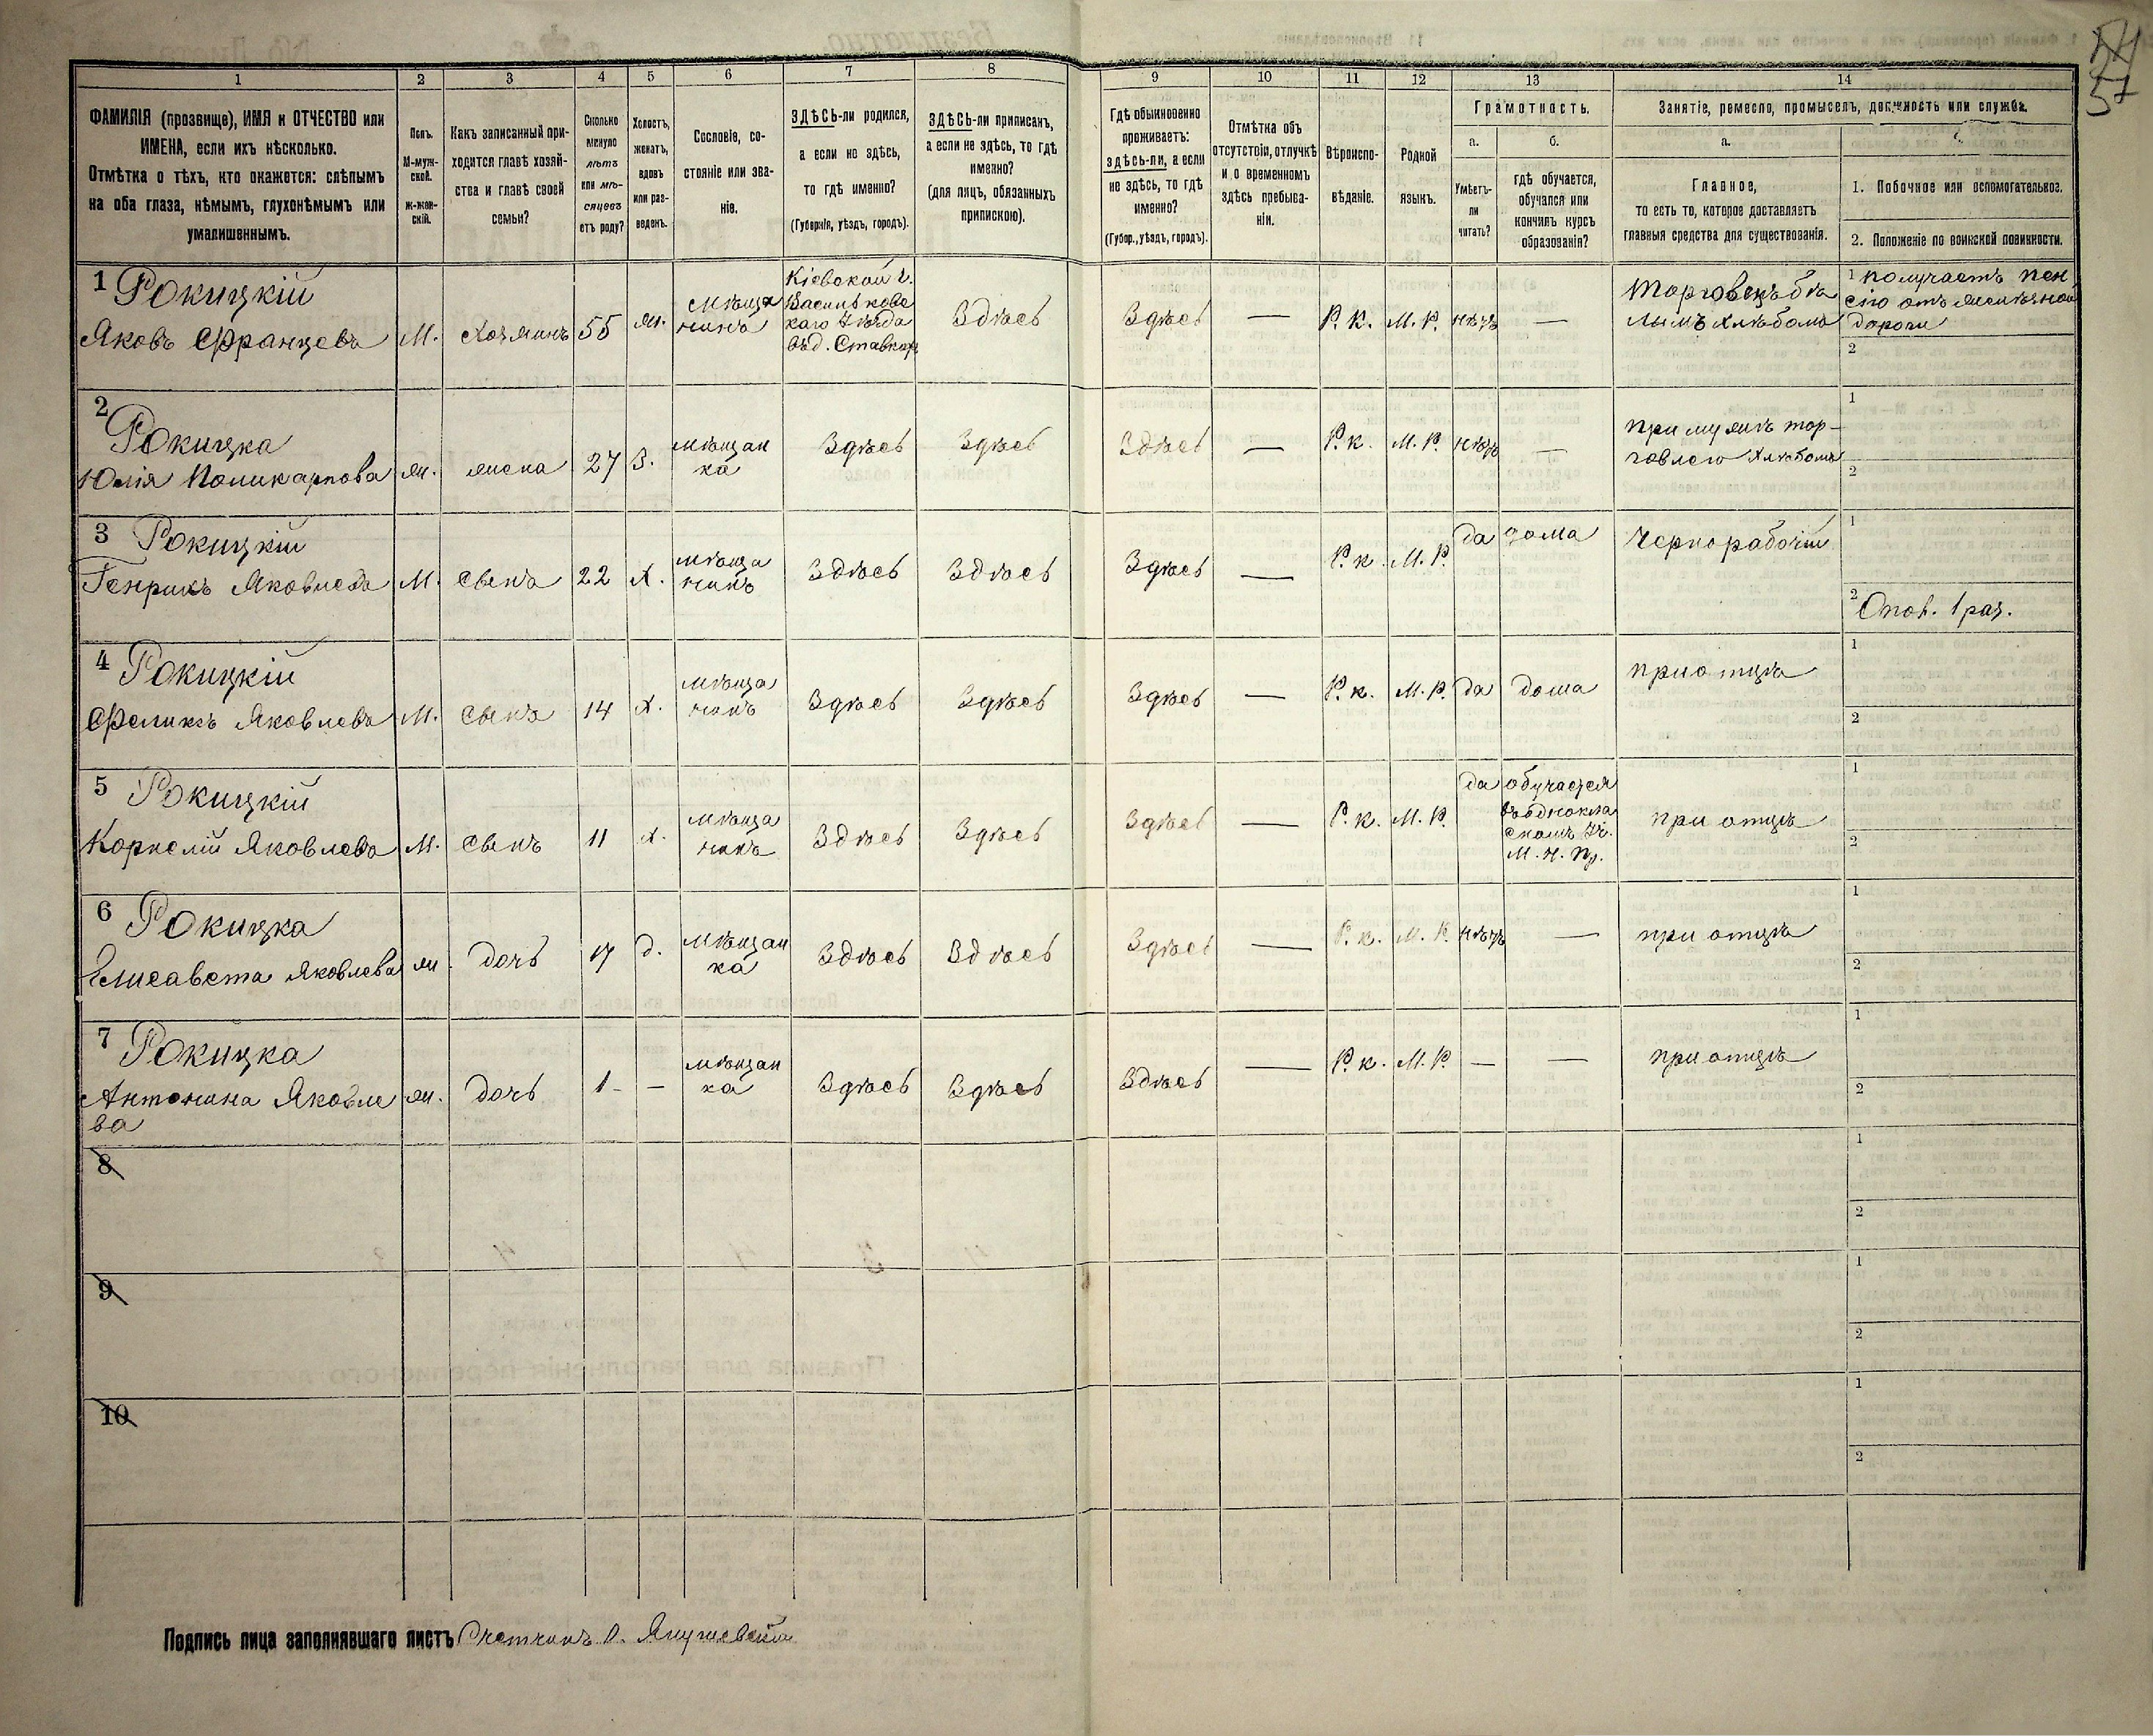 1 2 3 4 5 6 7 8 9 10 11 12 13 14
ФАМИЛІЯ (прозвище), ИМЯ и ОТЧЕСТВО или
ИМЕНА, если ихъ нѣсколько.
Отмѣтка о тѣхъ, кто окажется: слѣпымъ
на оба глаза, нѣмымъ, глухонѣмымъ или
умалишеннымъ.
Полъ.
М-муж-
ской.
ж-жен-
скій.
Какъ записанный при-
ходится главѣ хозяй-
ства и главѣ своей
семьи?
Сколько
минуло
лѣтъ
или мѣ-
сяцевъ
отъ роду?
Холостъ,
женатъ,
вдовъ
или раз-
веденъ.
Сословіе, со-
стояніе или зва-
ніе.
ЗДѢСЬ-ли родился,
а если не здѣсь,
то гдѣ именно?
(Губернія, уѣздъ, городъ).
ЗДѢСЬ-ли приписанъ,
а если не здѣсь, то гдѣ
именно?
(для лицъ, обязанныхъ
припискою).
Гдѣ обыкновенно
проживаетъ:
здѣсь-ли, а если
не здѣсь, то гдѣ
именно?
(Губер., уѣздъ, городъ).
Отмѣтка объ
отсутствіи, отлучкѣ
и о временномъ
здѣсь пребыва-
ніи.
Вѣроиспо-
вѣданіе.
Родной
языкъ.
Грамотность.
а.
Умѣетъ-
ли
читать?
б.
гдѣ обучается,
обучался или
кончилъ курсъ
образованія?
Занятіе, ремесло, промыселъ, должность или служба.
а.
Главное,
то есть то, которое доставляетъ
главныя средства для существованія.
1. Побочное или вспомогательное.
2. Положеніе по воинской повинности.
1 Рокицкій
Яковъ Францевъ
М.
Хозяинъ
55
ж.
мѣща
нинъ
Кіевской г.
Васильков
каго Уѣзда
Здѣсь
Здѣсь
—
Р. К.
М. Р.
нѣтъ
—
Торговецъ бѣ
лымъ хлѣбомъ
1 получаетъ пен
сію отъ желѣзной
дороги
2
2 Рокицка
Юлія Поликарпова
ж.
жена
27
З.
мѣщан
ка
Здѣсь
Здѣсь
Здѣсь
—
Р. к.
М. Р.
нѣтъ
—
при мужѣ тор-
говлею хлѣбомъ
1
2
3 Рокицкій
Генрихъ Яковлевъ
М.
сынъ
22
х.
мѣща
нинъ
Здѣсь
Здѣсь
Здѣсь
—
Р. к.
М. Р.
да
дома
чернорабочій
1
2 Опол. 1 раз.
4 Рокицкій
Феликсъ Яковлевъ
М.
сынъ
14
х.
мѣща
нинъ
Здѣсь
Здѣсь
Здѣсь
—
Р. к.
М. Р.
да
дома
при отцѣ
1
2
5 Рокицкій
Корнелій Яковлевъ
М.
сынъ
11
х.
мѣща
нинъ
Здѣсь
Здѣсь
Здѣсь
—
Р. к.
М. Р.
да
обучается
въ однокла
сномъ Уч.
М. Н. Пр.
при отцѣ
1
2
6 Рокицка
Елисавета Яковлева
ж.
дочь
17
д.
мѣщан
ка
Здѣсь
Здѣсь
Здѣсь
—
Р. к.
М. Р.
нѣтъ
—
при отцѣ
1
2
7 Рокицка
Антонина Яковле
ва
ж.
дочь
1
—
мѣщан
ка
Здѣсь
Здѣсь
Здѣсь
—
Р. к.
М. Р.
—
—
при отцѣ
1
2
8
1
2
9
1
2
10
1
2
Подпись лица заполнявшаго листъ Счетчикъ
57